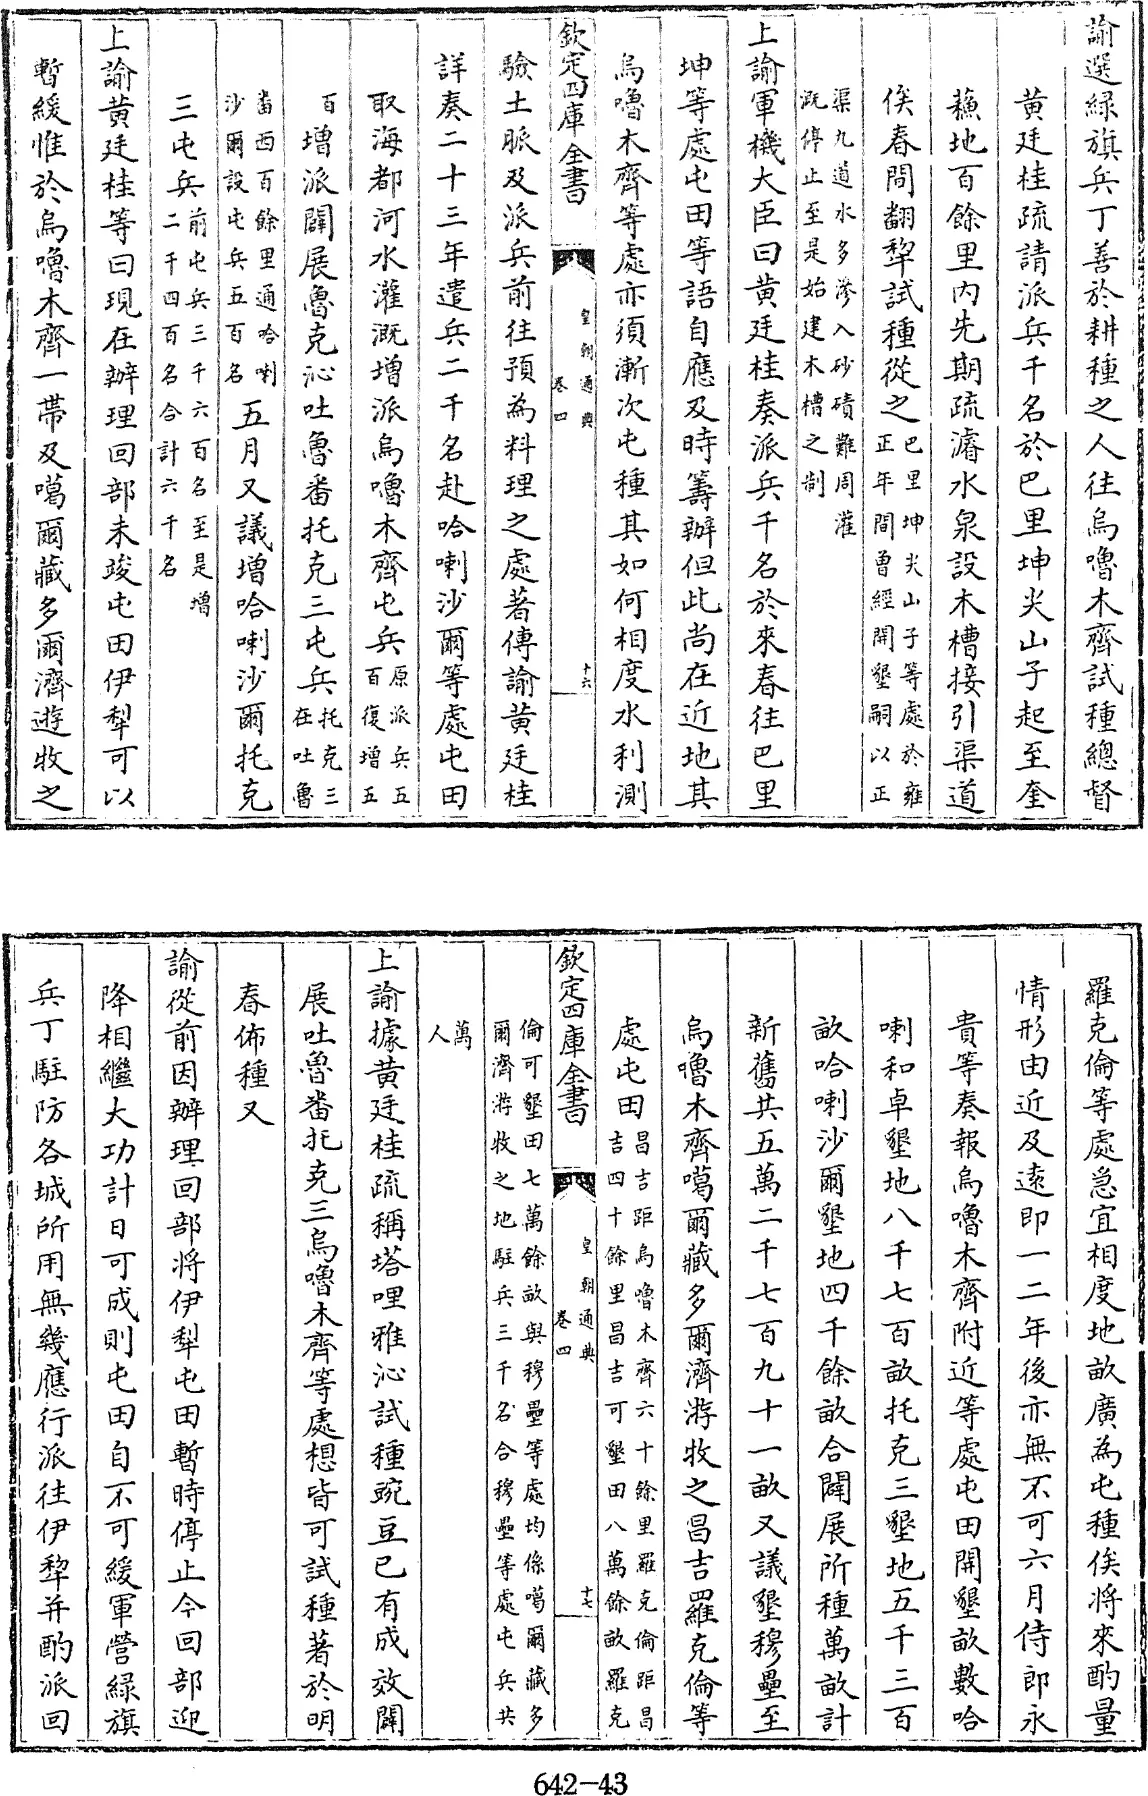 諭選緑旗兵丁善於耕種之人往烏嚕木齊試種總督
黄廷桂疏請派兵千名於巴里坤尖山子起至奎
蘓地百餘里内先期疏濬水泉設木槽接引渠道
俟春間翻犂試種從之巴里坤尖山子等處於雍正年間曾經開墾嗣以正
渠九道水多滲入砂磧難周灌溉停止至是始建木槽之制
上諭軍機大臣曰黄廷桂奏派兵千名於來春往巴里
坤等處屯田等語自應及時籌辦但此尚在近地其
烏嚕木齊等處亦須漸次屯種其如何相度水利測
欽定四庫全書
皇朝通典
卷四
十六
驗土脈及派兵前往預為料理之處著傳諭黄廷桂
詳奏二十三年遣兵二千名赴哈喇沙爾等處屯田
取海都河水灌溉增派烏嚕木齊屯兵原派兵五百復增五
百增派闢展魯克沁吐魯番托克三屯兵托克三在吐魯
畨西百餘里通哈喇沙爾設屯兵五百名五月又議增哈喇沙爾托克
三屯兵前屯兵三千六百名至是增二千四百名合計六千名
上諭黄廷桂等曰現在辦理回部未竣屯田伊犂可以
暫緩惟於烏嚕木齊一帶及噶爾藏多爾濟遊牧之
羅克倫等處急宜相度地畝廣為屯種俟將來酌量
情形由近及遠即一二年後亦無不可六月侍郎永
貴等奏報烏嚕木齊附近等處屯田開墾畝數哈
喇和卓墾地八千七百畝托克三墾地五千三百
畝哈喇沙爾墾地四千餘畝合闢展所種萬畝計
新舊共五萬二千七百九十一畝又議墾穆壘至
烏嚕木齊噶爾藏多爾濟游牧之昌吉羅克倫等
處屯田昌吉距烏嚕木齊六十餘里羅克倫距昌吉四十餘里昌吉可墾田八萬餘畝羅克
欽定四庫全書
皇朝通典
卷四
十七
倫可墾田七萬餘畝與穆壘等處均係噶爾藏多爾濟游牧之地駐兵三千名合穆壘等處屯兵共
萬人
上諭據黄廷桂疏稱塔哩雅沁試種豌豆已有成效闢
展吐魯番托克三烏嚕木齊等處想皆可試種著於明
春佈種又
諭從前因辦理回部將伊犂屯田暫時停止今回部迎
降相繼大功計日可成則屯田自不可緩軍營緑旗
兵丁駐防各城所用無幾應行派往伊犂并酌派回
642-43